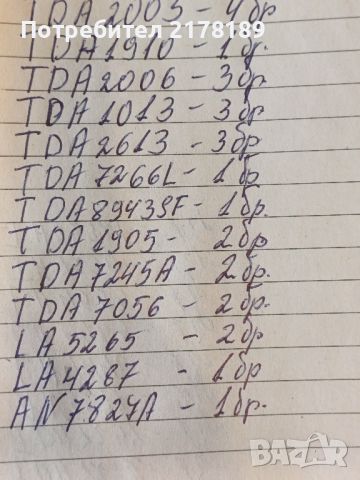 Потребител 2178189
TDA 2003 - 4 бр
TDA 1910 - 1 бр.
TDA 2006 - 3 бр
TDA 1013 - 3 бр
TDA 2613 - 3бр
TDA 7266L - 1 бр
TDA8943SF - 1 бр.
TDA 1905 - 2 бр
TDA 7245A - 2 бр.
TDA 7056 - 2 бр.
LA 5265 - 2 бр
LA 4287 - 1 бр
AN 7827A - 1 бр.
BAZAR